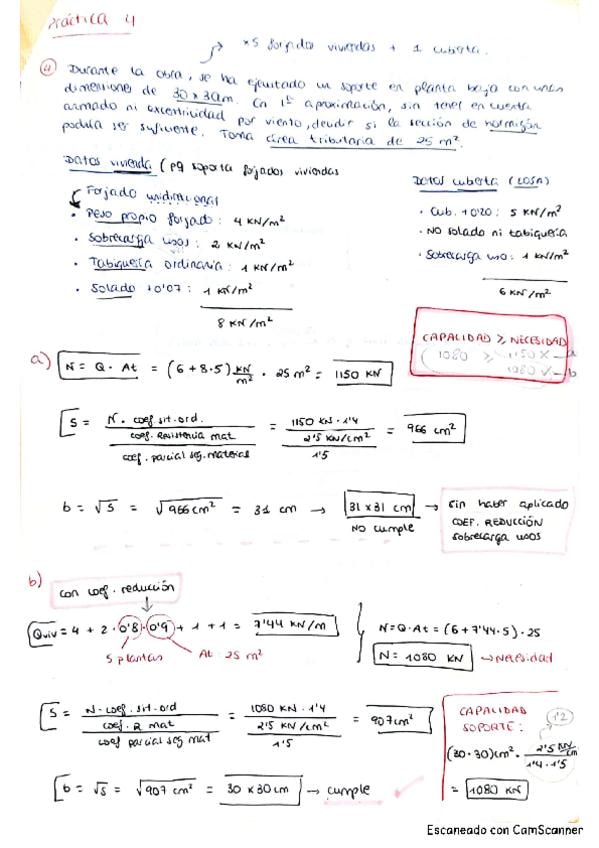 Práctica 4
x5 forjados viviendas + 1 cubierta.
④ Durante la obra, se ha ejecutado un soporte en planta baja con unas
dimensiones de 30x30cm. En 1ª aproximación, sin tener en cuenta
armado ni excentricidad por viento, decidir si la sección de hormigón
podría ser suficiente. Toma área tributaria de 25 m².
Datos vivienda (pq soporta forjados viviendas
Forjado unidireccional
• Peso propio forjado: 4 KN/m²
• Sobrecarga usos: 2 KN/m²
• Tabiquería ordinaria: 1 KN/m²
• Solado +0'07: 1 KN/m²
8 KN/m²
Datos cubierta (LOSA)
• Cub. +0'20: 5 KN/m²
• NO solado ni tabiquería
• Sobrecarga uso: 1 KN/m²
6 KN/m²
CAPACIDAD ≥ NECESIDAD
(1080 ≥ 1150 X — a
1080 ✓ — b
a) N = Q · At = (6+8·5) KN/m² · 25 m² = 1150 KN
S = N · coef. sit. ord. / (coef. Resistencia mat / coef. parcial seg. materias) = 1150 KN · 1'4 / (2'5 KN/cm² / 1'5) = 966 cm²
b = √S = √966 cm² = 31 cm → 31x31 cm → Sin haber aplicado
NO cumple COEF. REDUCCIÓN
sobrecarga usos
b)
con coef. reducción
Qviv = 4 + 2 · 0'8 · 0'9 + 1 + 1 = 7'44 KN/m
5 plantas At: 25 m²
N = Q · At = (6 + 7'44 · 5) · 25
N = 1080 KN → Necesidad
S = N · coef. sit. ord / (coef. R mat / coef parcial seg mat) = 1080 KN · 1'4 / (2'5 KN/cm² / 1'5) = 907 cm²
b = √S = √907 cm² = 30x30 cm → cumple
CAPACIDAD
SOPORTE: 1'2
(30·30)cm² · 2'5 KN/cm / 1'4 · 1'5
= 1080 KN
Escaneado con CamScanner